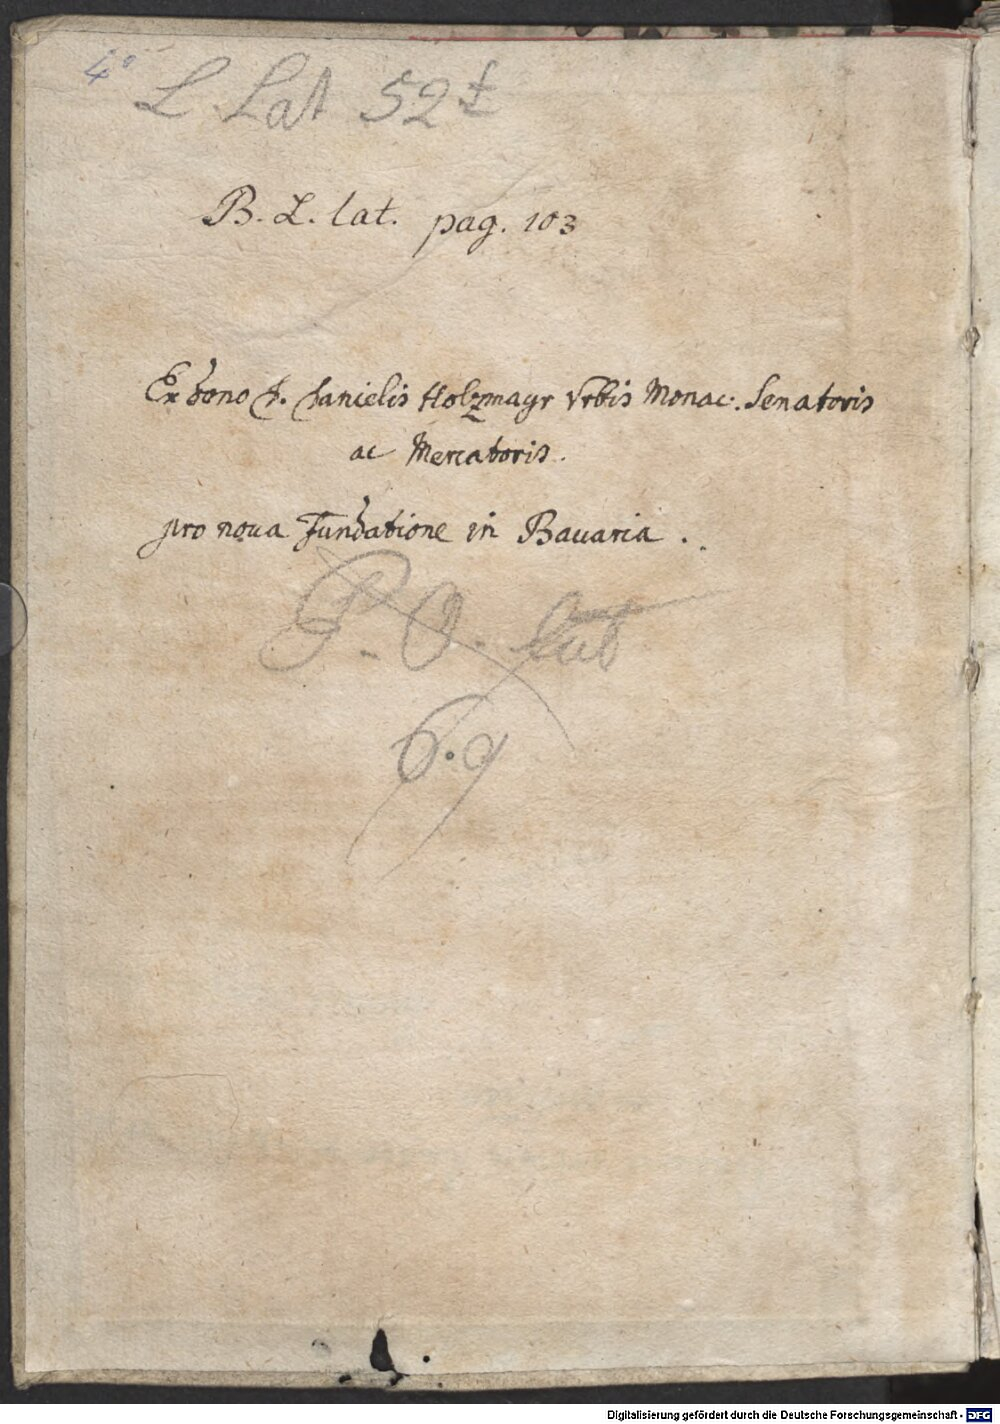 4° L Lat 52 f
B. L. lat. pag. 103
Ex dono D. Danielis Holzmayr Vrbis Monac. Senatoris
ac Mercatoris.
pro noua Fundatione in Bauaria .
P. O. lat
69
Digitalisierung gefördert durch die Deutsche Forschungsgemeinschaft - DFG